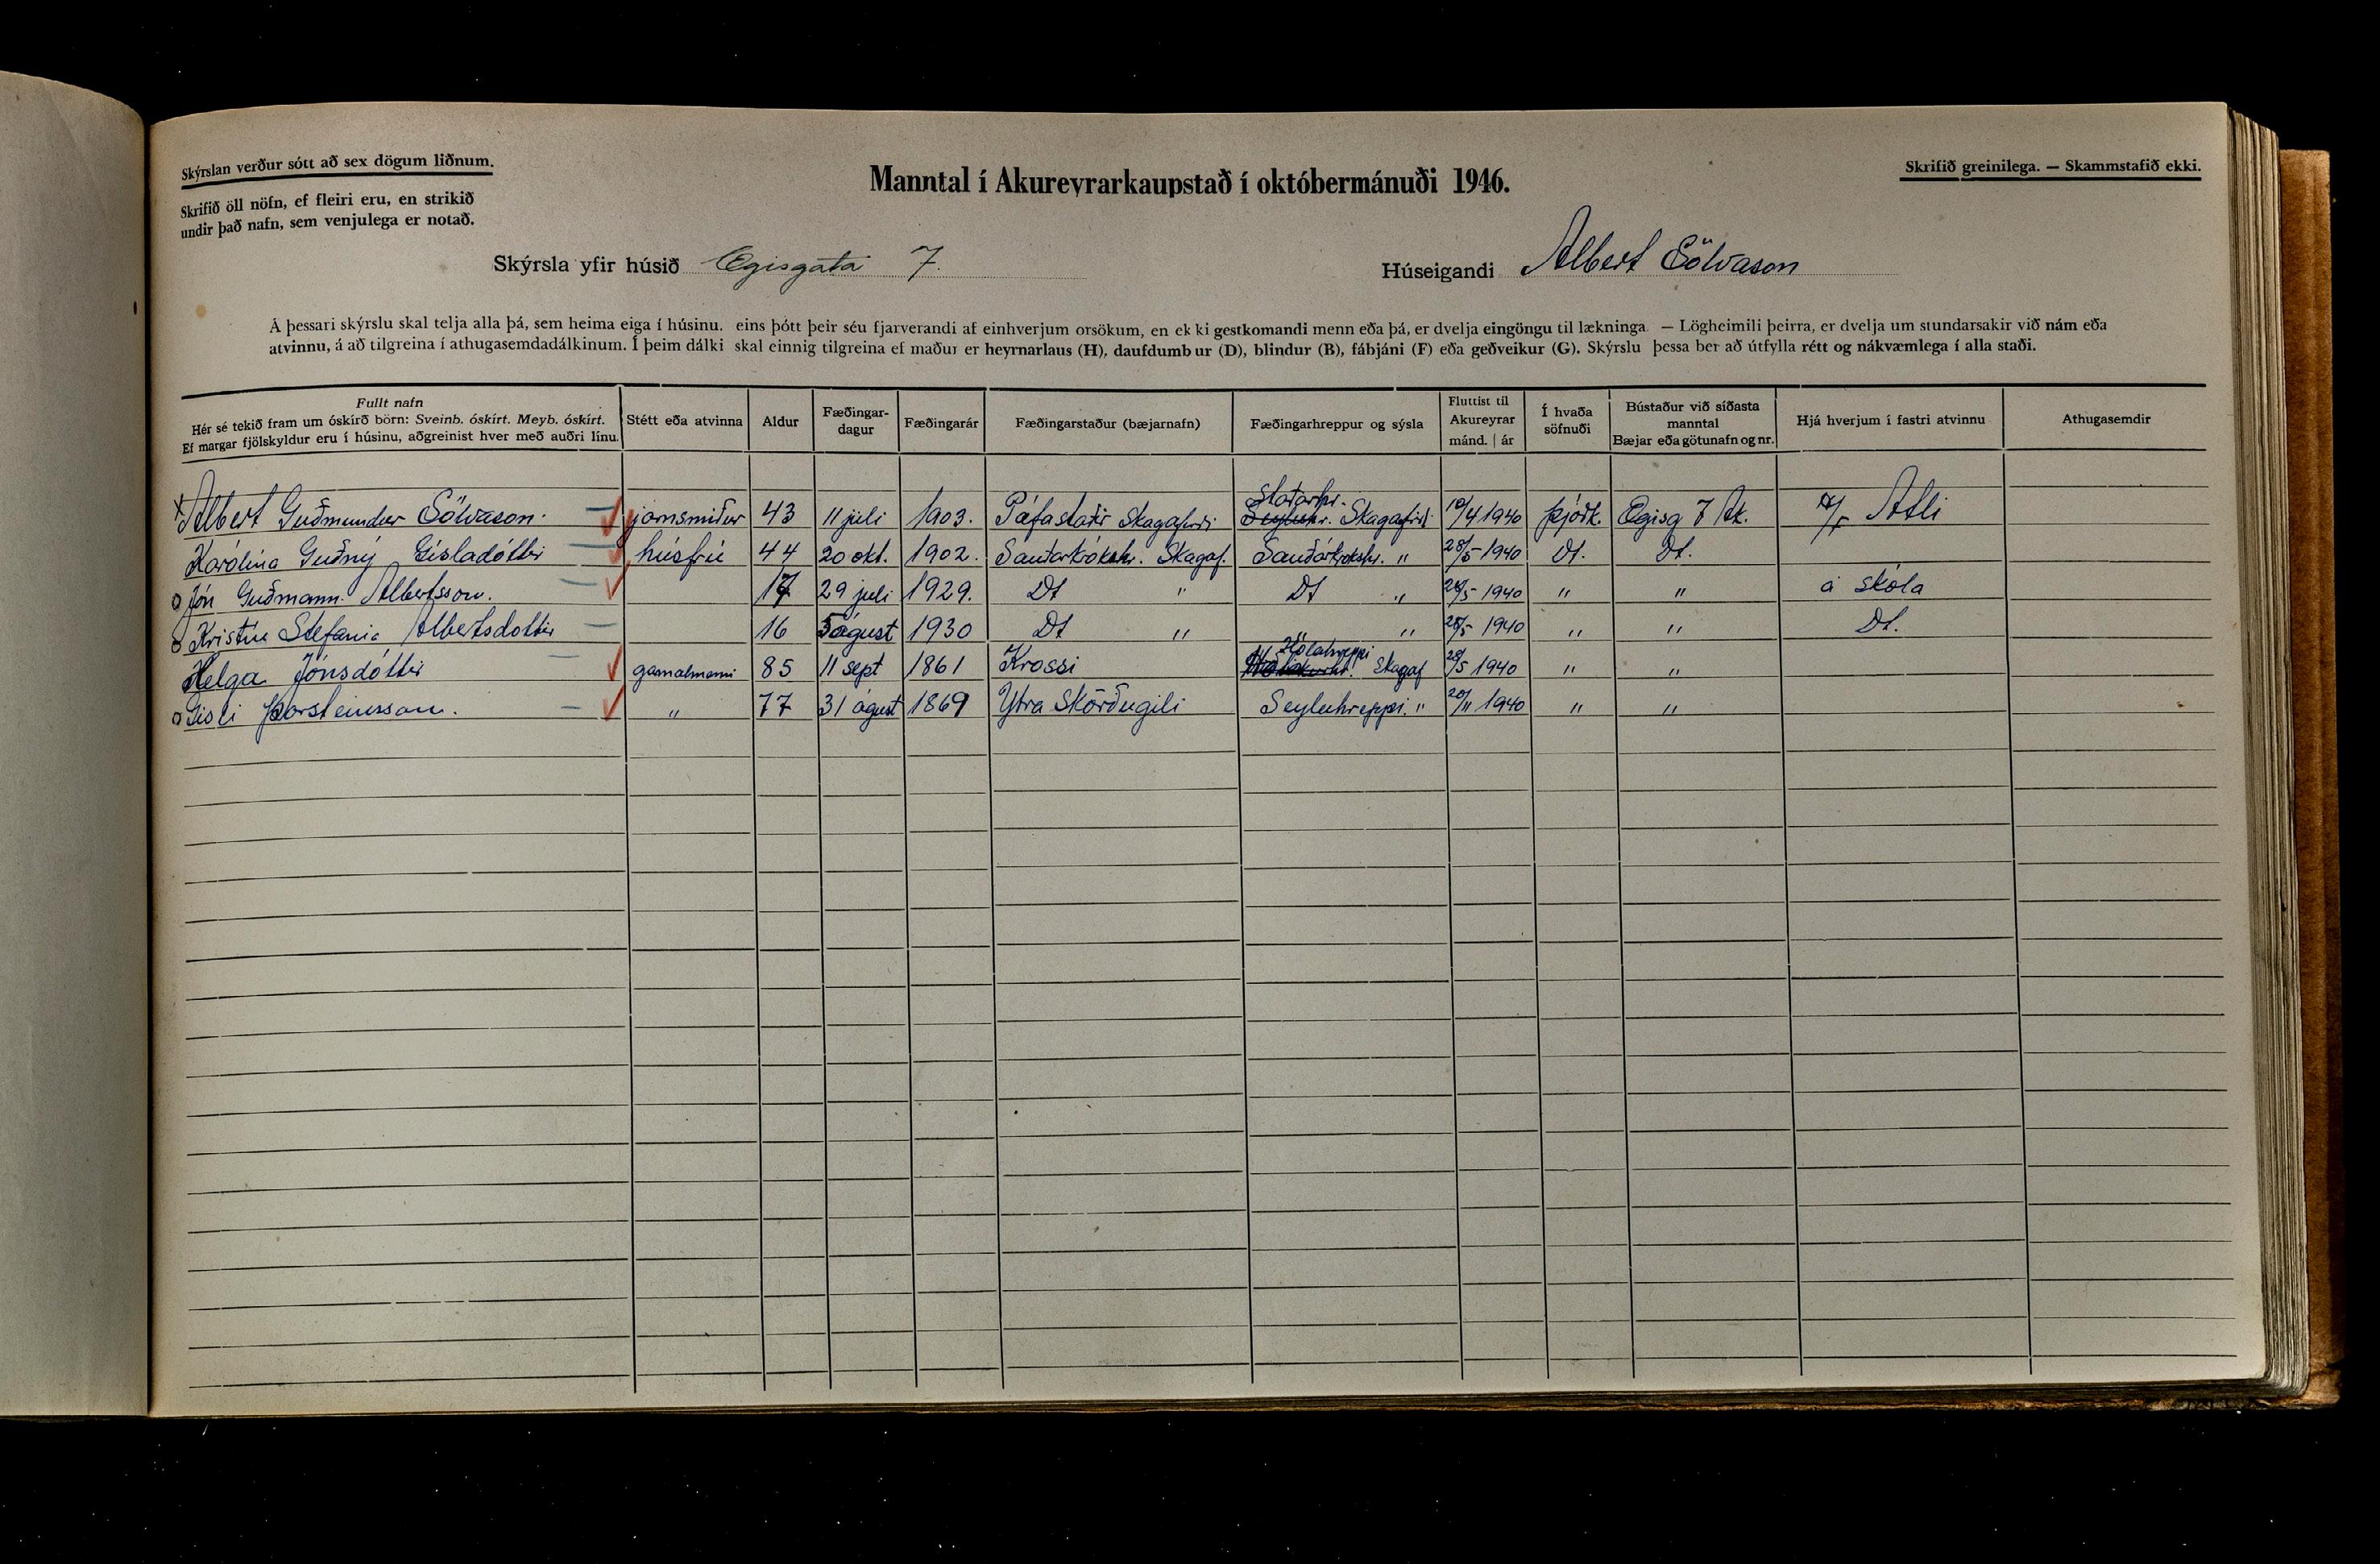 Skýrslan verður sótt að sex dögum liðnum.
Skrifið öll nöfn, ef fleiri eru, en strikið
undir það nafn, sem venjulega er notað.
Manntal í Akureyrarkaupstað í októbermánuði 1946.
Skrifið greinilega. — Skammstafið ekki.
Skýrsla yfir húsið Ægisgata 7.
Húseigandi Albert Sölvason
Á þessari skýrslu skal telja alla þá, sem heima eiga í húsinu, eins þótt þeir séu fjarverandi af einhverjum orsökum, en ekki gestkomandi menn eða þá, er dvelja eingöngu til lækninga. — Lögheimili þeirra, er dvelja um stundarsakir við nám eða
atvinnu, á að tilgreina í athugasemdadálkinum. Í þeim dálki skal einnig tilgreina ef maður er heyrnarlaus (H), daufdumbur (D), blindur (B), fábjáni (F) eða geðveikur (G). Skýrslu þessa ber að útfylla rétt og nákvæmlega í alla staði.
Fullt nafn
Hér sé tekið fram um óskírð börn: Sveinb. óskírt. Meyb. óskírt.
Ef margar fjölskyldur eru í húsinu, aðgreinist hver með auðri línu.
Stétt eða atvinna
Aldur
Fæðingar-
dagur
Fæðingarár
Fæðingarstaður (bæjarnafn)
Fæðingarhreppur og sýsla
Fluttist til
Akureyrar
mánd. | ár
Í hvaða
söfnuði
Bústaður við síðasta
manntal
Bæjar eða götunafn og nr.
Hjá hverjum í fastri atvinnu
Athugasemdir
Staðarhr.
Albert Guðmundur Sölvason. járnsmiður 43 11 júli 1903. Páfastaðir Skagafirði Seyluhr. Skagafirði 10/4 1940 þjóðk. Ægisg 7 Ak. h/f Atli
Karólína Guðný Gísladóttir húsfrú 44 20 okt. 1902. Sauðárkrókshr. Skagaf. Sauðárkrokshr. " 28/5 1940 Dt. Dt.
Jón Guðmann Albertsson. 17 29 juli 1929. Dt " Dt " 28/5 1940 " " á skóla
Kristín Stefanía Albertsdóttir 16 5 ágúst 1930 Dt " " " 28/5 1940 " " Dt.
Hólahreppi
Helga Jónsdóttir gamalmenni 85 11 sept 1861 Krossi Skagaf 28/5 1940 " "
Gísli Þorsteinsson. " 77 31 ágúst 1869 Ytra Skörðugili Seyluhreppi. " 20/11 1940 " "